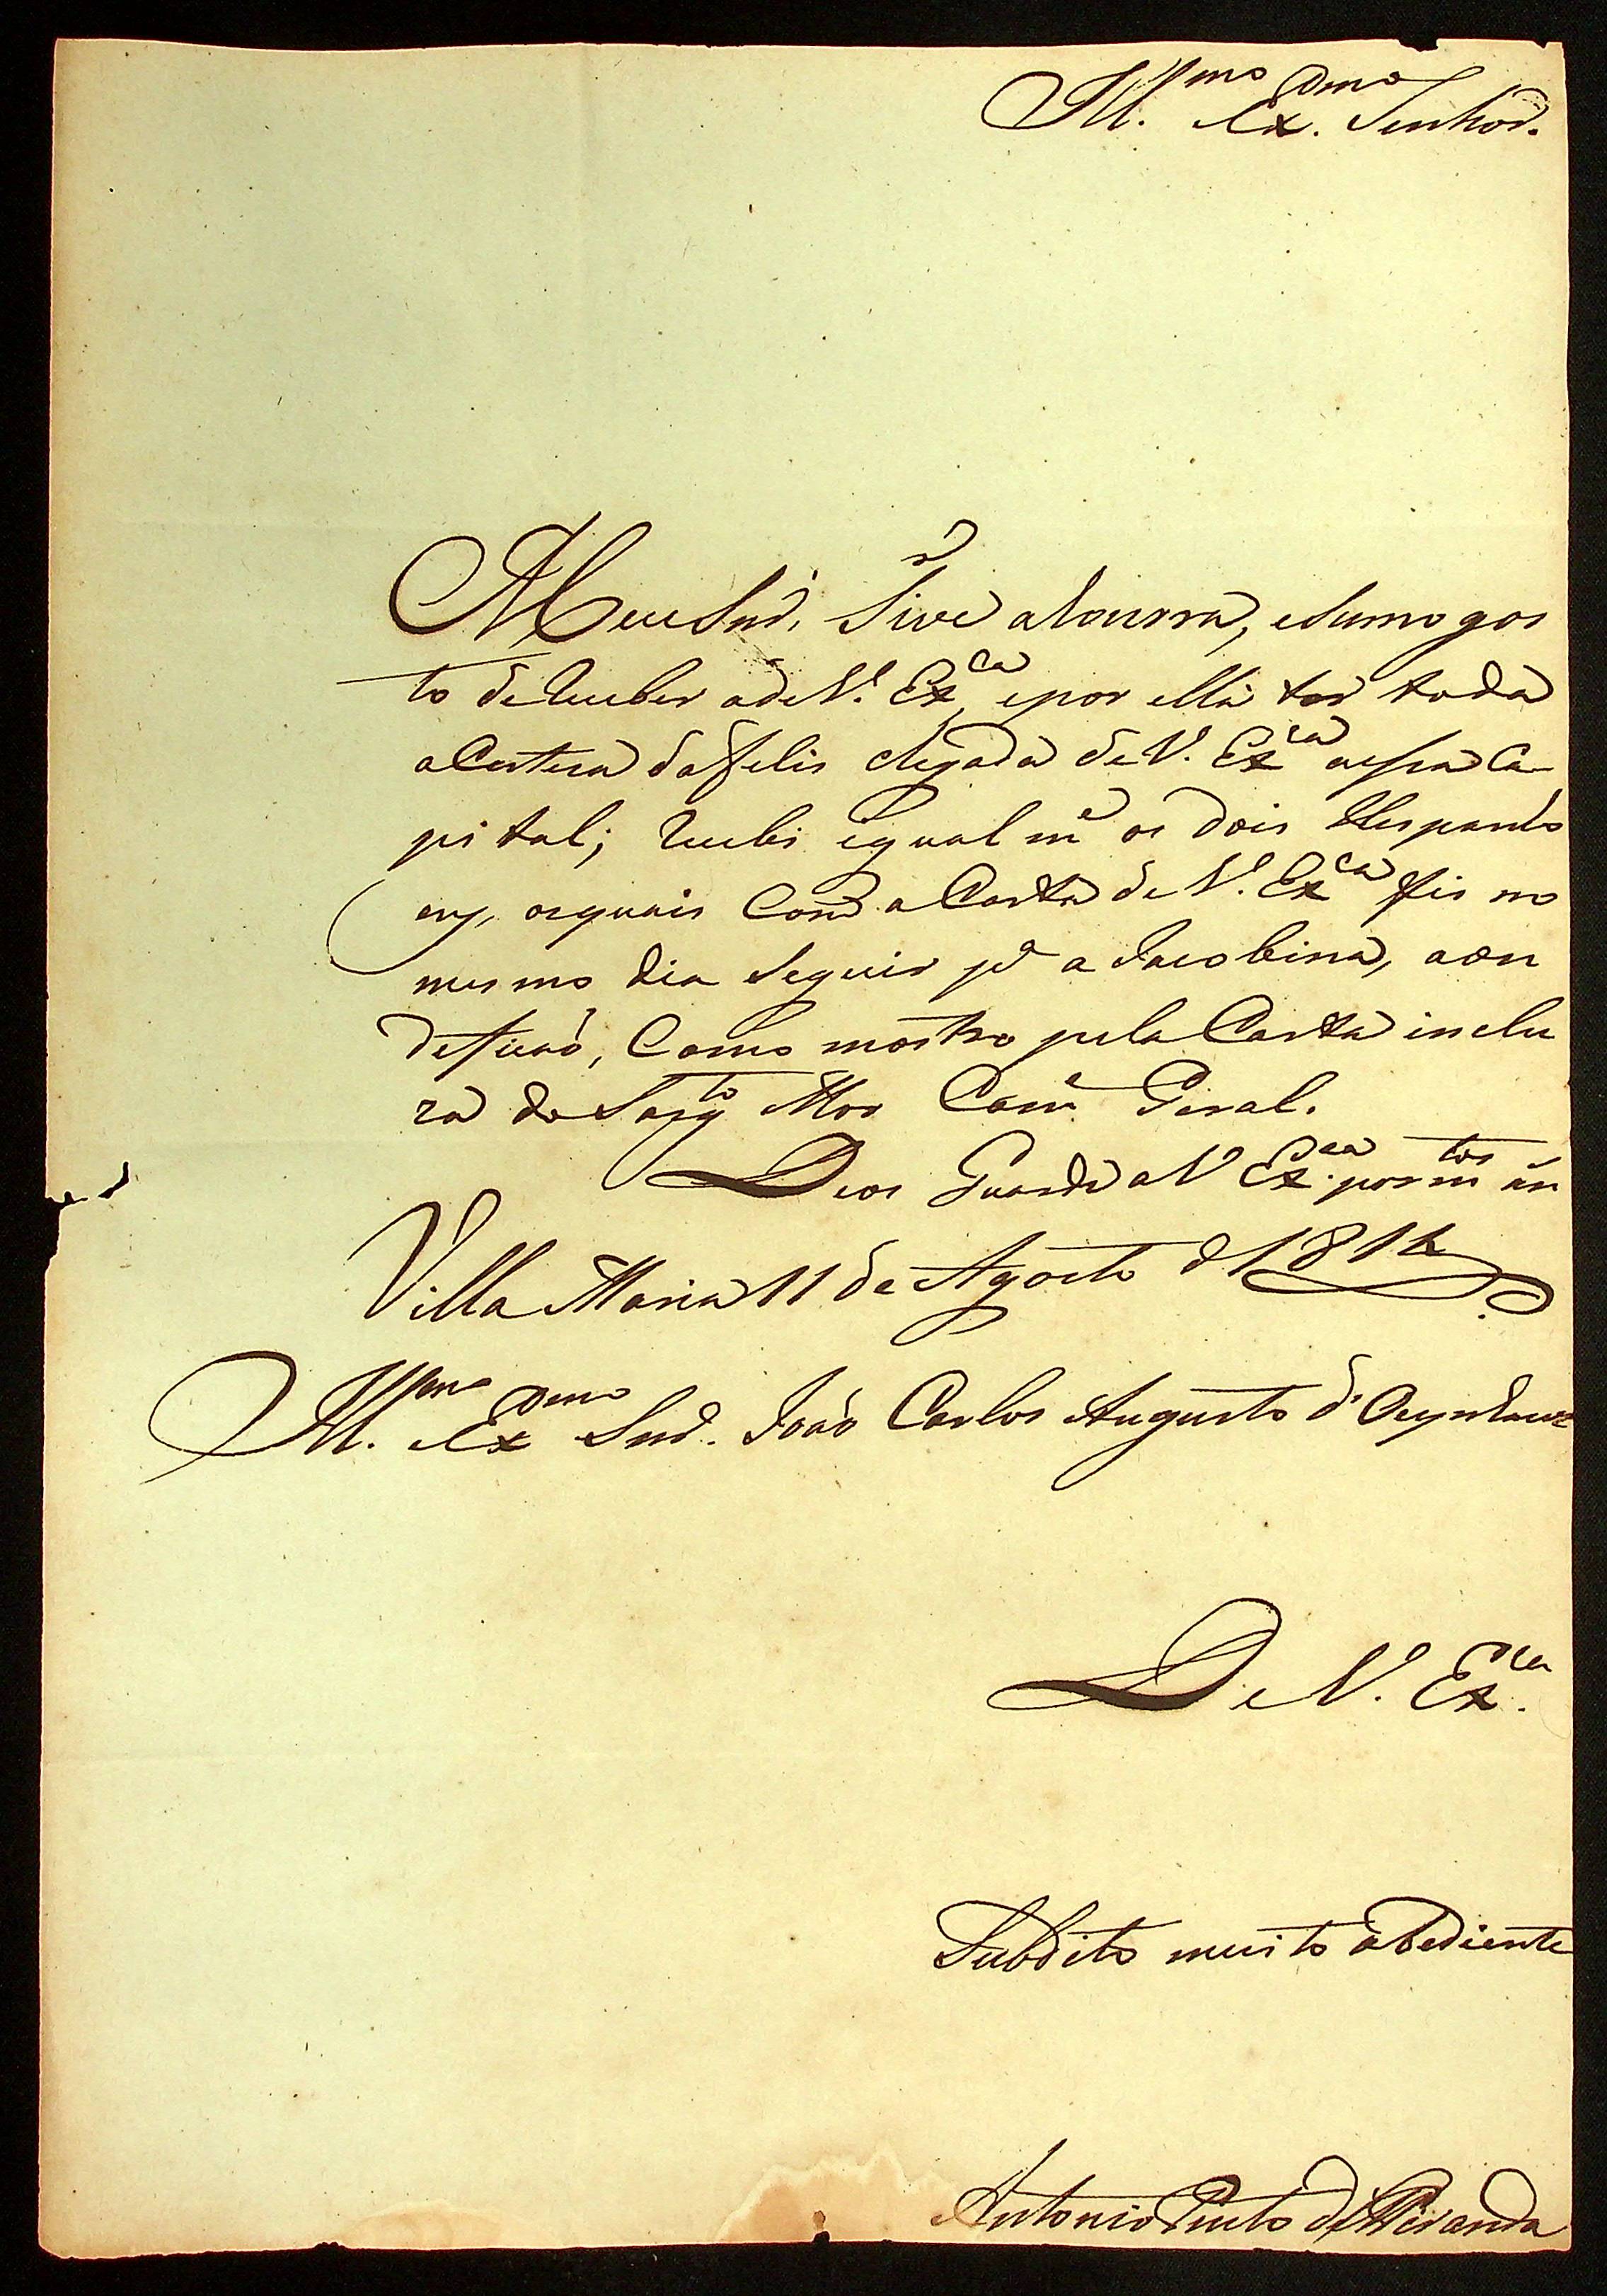 Ill.mo Ex.mo Senhor.
Meu Snr. Tive a honrra, e sumo gos
to de receber a de V. Exca, e por ella ter toda
a Certeza da felis chegada de V. Exca a essa Ca-
pital; recebi igual me os dois Hespanho
es, os quais Com a Carta de V. Exca fis no
mesmo dia seguir pa a Jacobina, aon
de ficaõ, Como mostro pela Carta inclu
za do Sargto Mor Come Geral.
Deos Guarde a V Exca por mtos an
Villa Maria 11 de Agosto d 1814
Ill.mo Exmo Snr. Joaõ Carlos Augusto d'Oeynhauz
De V. Exca.
Subdito muito obediente
Antonio Pinto de Miranda